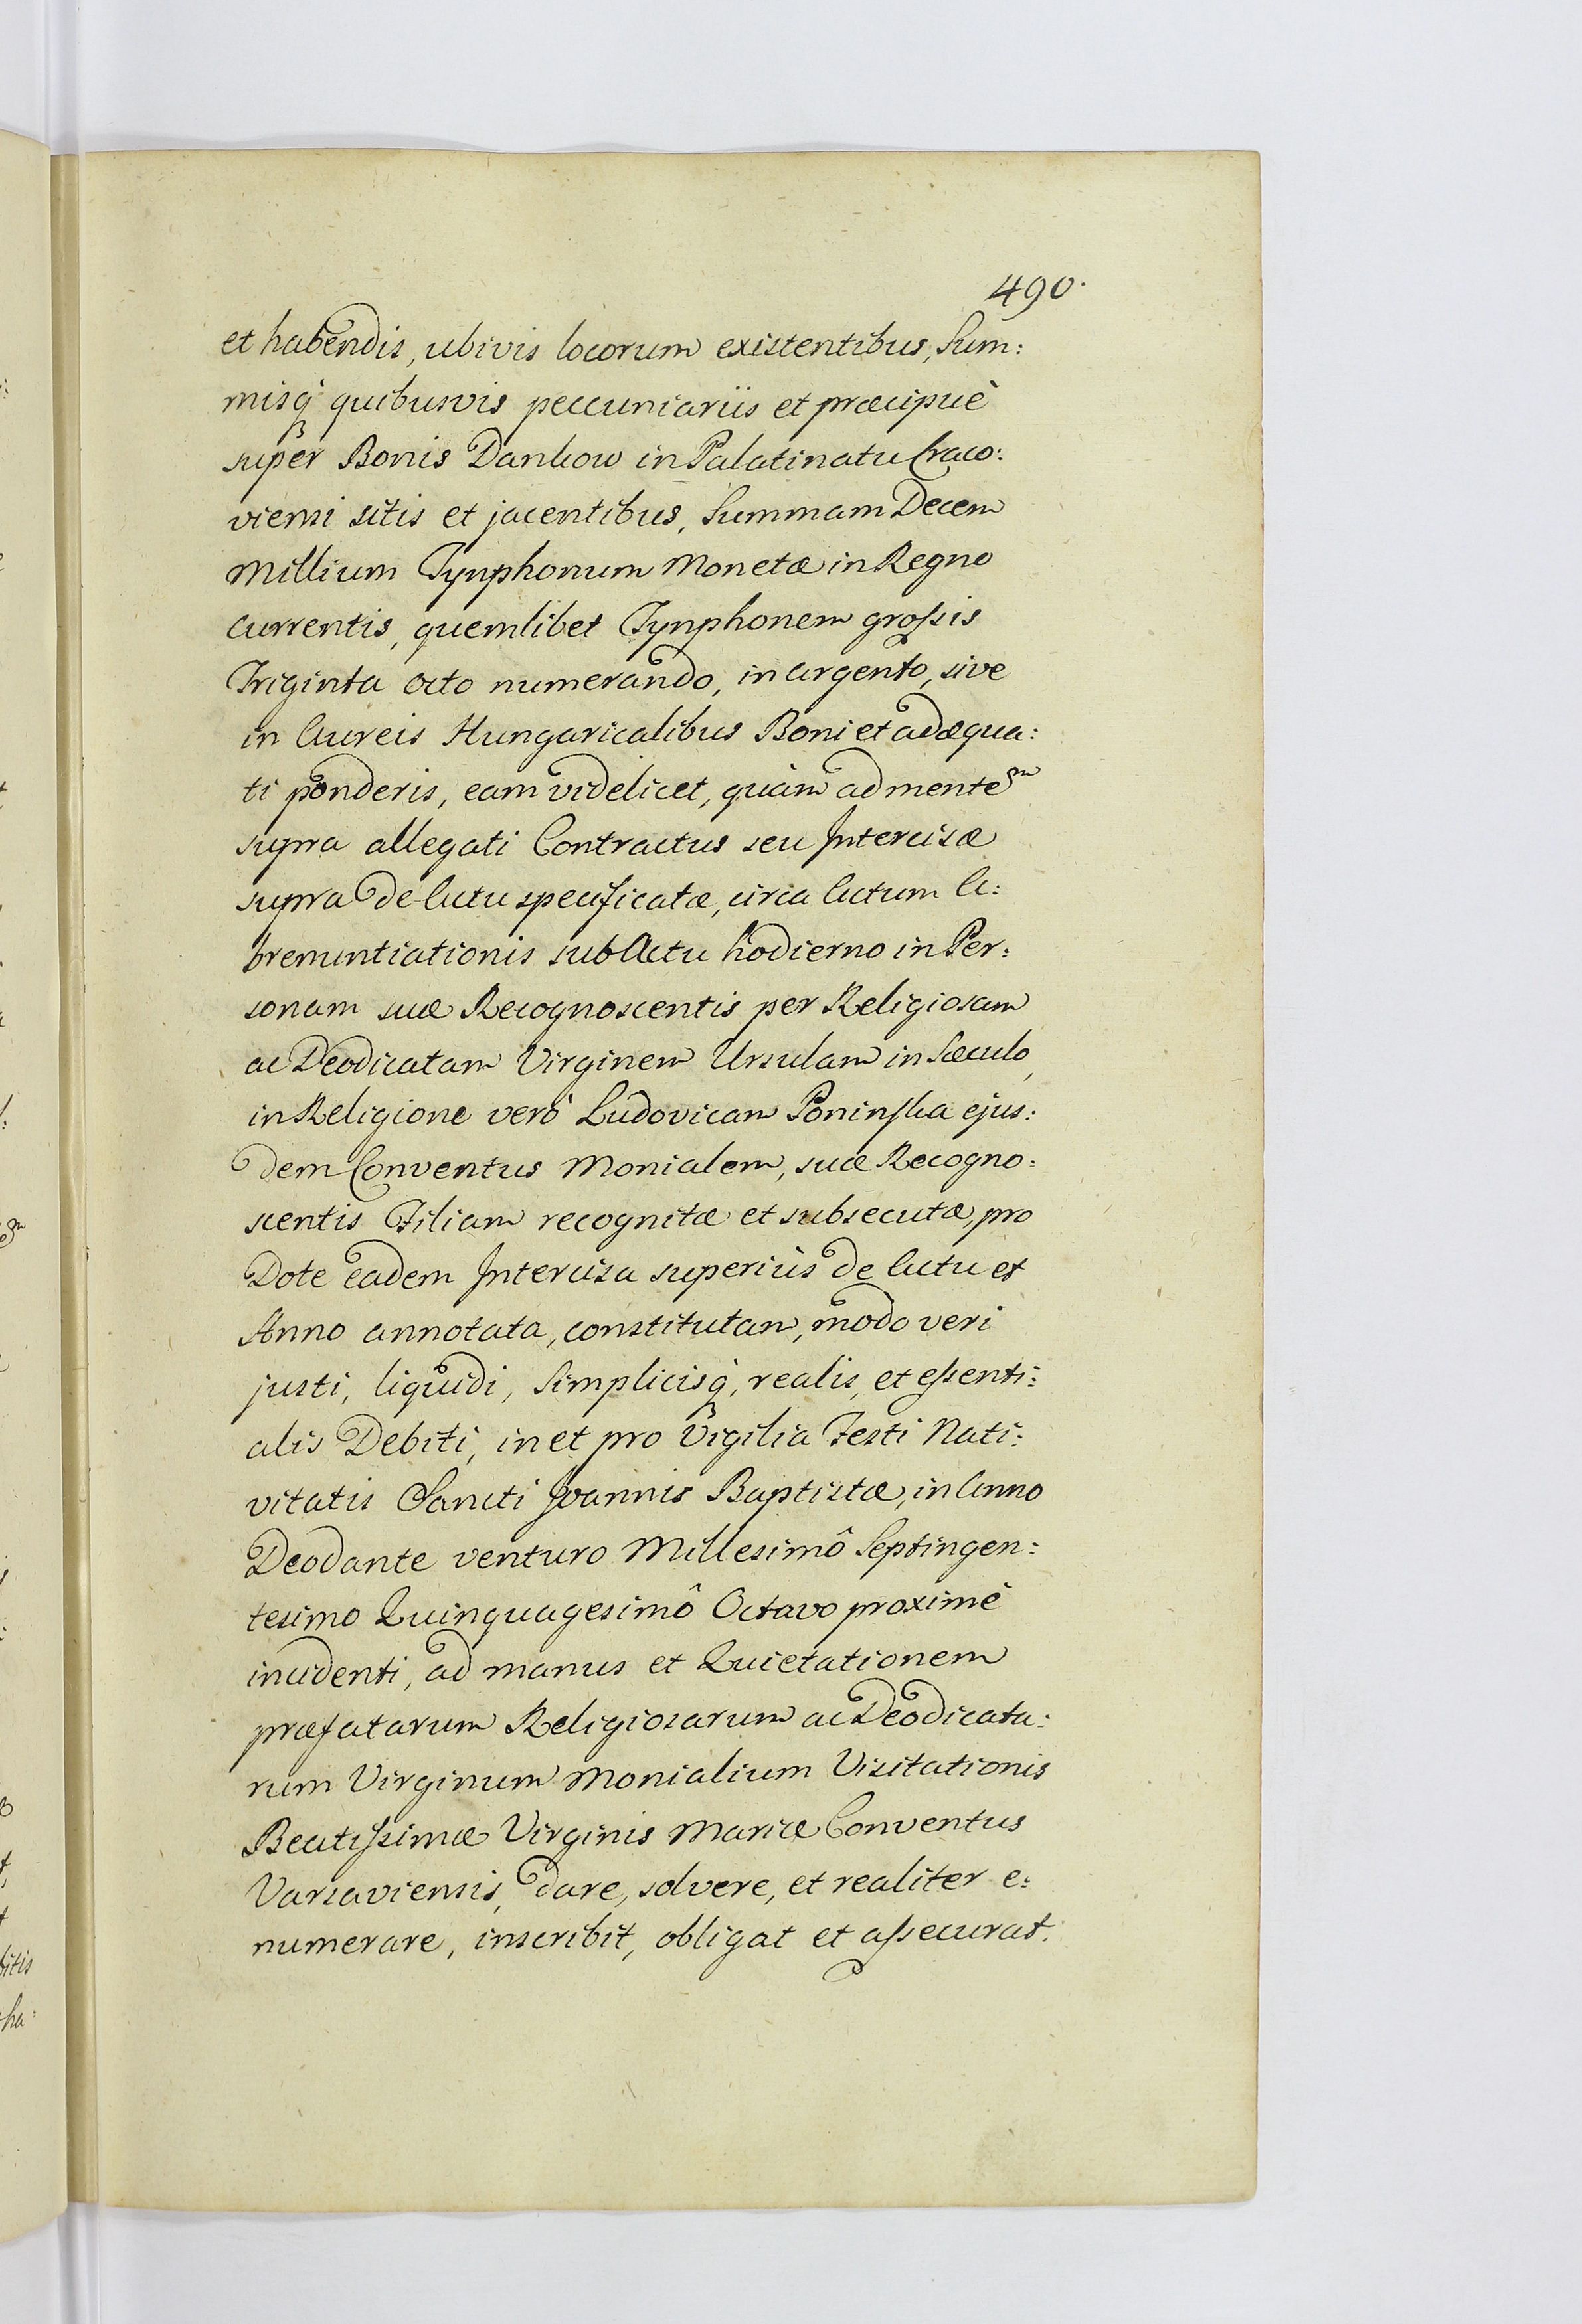 490.
et habendis, ubivis locorum existentibus, Sum:
misq́ quibusvis peccuniariis et præcipuè
super Bonis Dankow in Palatinatu Craco:
viensi sitis et jacentibus, Summam Decem
Millium Tynphonum Monetæ in Regno
currentis, quemlibet Tynphonem grossis
Triginta octo numerando, in argento, sive
in Aureis Hungaricalibus Boni et adæqua:
ti ponderis, eam videlicet, quàm ad mentem
supra allegati Contractus seu Intercisæ
supra de Actu specificatæ, circa Actum A:
brenuntiationis sub Actu hodierno in Per:
sonam suæ Recognoscentis per Religiosam
ac Deodicatam Virginem Ursulam in Sæculo,
in Religione verò Ludovicam Poninska ejus:
dem Conventus Monialem, suæ Recogno:
scentis Filiam recognitæ et subsecutæ, pro
Dote eadem Intercisa superiùs de Actu et
Anno annotata, constitutam, modo veri
justi, liquidi, Simplicisq́, realis, et essenti:
alis Debiti, in et pro Vigilia Festi Nati:
vitatis Sancti Joannis Baptistæ, in Anno
Deodante venturo Millesimô Septingen:
tesimo Quinquagesimô Octavo proximè
incidenti, ad manus et Quietationem
præfatarum Religiosarum ac Deodicata:
rum Virginum Monialium Visitationis
Beatissimæ Virginis Mariæ Conventus
Varsaviensis, dare, solvere, et realiter e:
numerare, inscribit, obligat et assecurat.